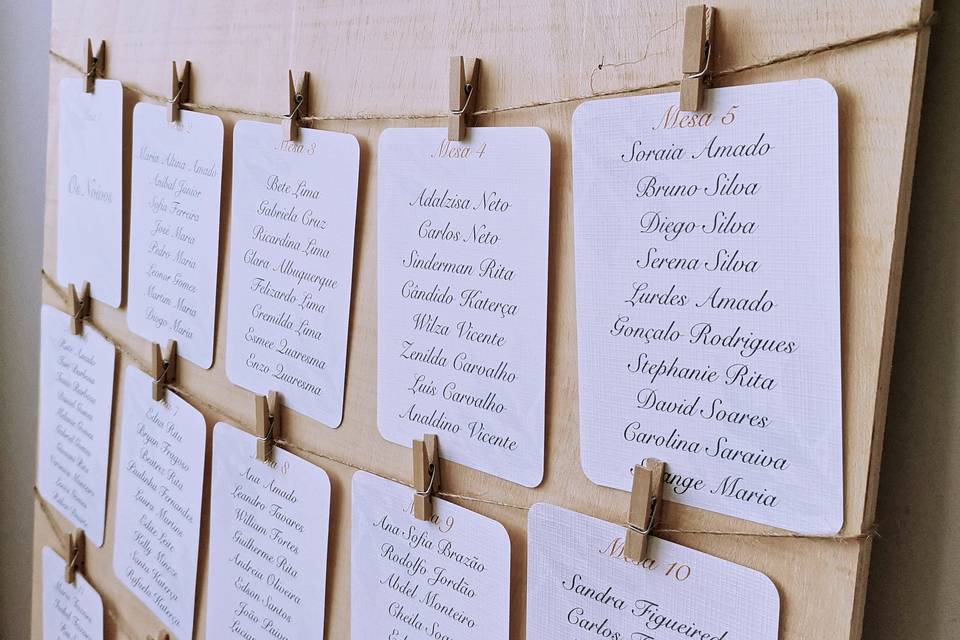 Mesa 1
Os Noivos
Mesa 2
Maria Altina Amado
Anibal Junior
Sofia Ferreira
José Maria
Pedro Maria
Leonor Gomes
Martim Maria
Diogo Maria
Mesa 3
Bete Lima
Gabriela Cruz
Ricardina Lima
Clara Albuquerque
Felizardo Lima
Cremilda Lima
Esmee Quaresma
Enzo Quaresma
Mesa 4
Adalzisa Neto
Carlos Neto
Sinderman Rita
Cândido Katerça
Wilza Vicente
Zenilda Carvalho
Luís Carvalho
Analdino Vicente
Mesa 5
Soraia Amado
Bruno Silva
Diego Silva
Serena Silva
Lurdes Amado
Gonçalo Rodrigues
Stephanie Rita
David Soares
Carolina Saraiva
ange Maria
Barbosa
Barbosa
Daniel Gomes
Gabriel Gomes
7
Edna Rita
Bryan Fragoso
Beatriz Rita
Paulinha Fernandes
Laura Martins
Edite Leite
Kelly
Santa Katerça
Rafaela Katerça
8
Ana Amado
Leandro Tavares
William Fortes
Guilherme Rita
Andreia Oliveira
Edson Santos
João
Mesa 9
Ana Sofia Brazão
Rodolfo Jordão
Abdel Monteiro
Cheila
Mesa 10
Sandra Figueired
Carlos